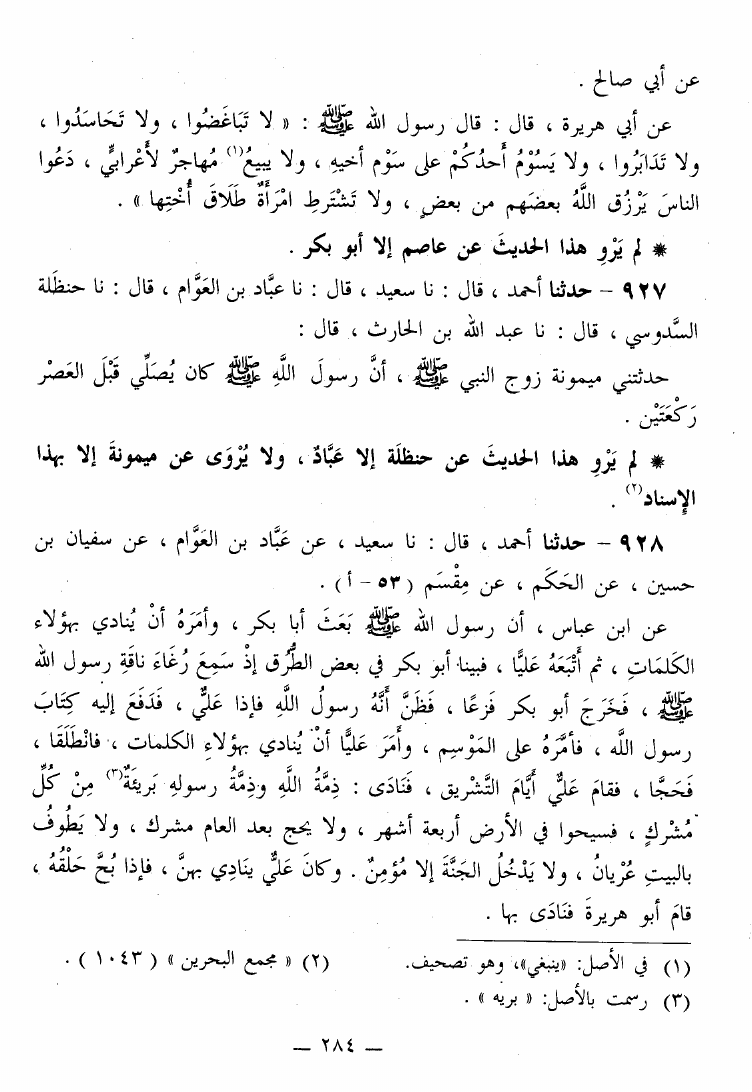 عن أبي صالح .
عن أبي هريرة ، قال : قال رسول الله ﷺ : « لا تَبَاغَضُوا ، ولا تَحَاسَدُوا ،
ولا تَدَابَرُوا ، ولا يَسُوْمُ أَحدُكُمْ على سَوْم أخيهِ ، ولا يبيعُ(١) مُهاجرٌ لأَعْرابيٍّ ، دَعُوا
الناسَ يَرْزُق اللَّهُ بعضَهم من بعضٍ ، ولا تَشْتَرطِ امْرَأَةٌ طَلَاقَ أُخْتِها » .
* لم يَرْوِ هذا الحديثَ عن عاصم إلا أبو بكر .
٩٢٧ – حدثنا أحمد ، قال : نا سعيد ، قال : نا عبَّاد بن العَوَّام ، قال : نا حنظَلة
السَّدوسي ، قال : نا عبد الله بن الحارث ، قال :
حدثتني ميمونة زوج النبي ﷺ ، أنَّ رسولَ اللَّهِ ﷺ كان يُصَلِّي قَبْلَ العَصْر
رَكْعَتَيْن .
* لم يَرْوِ هذا الحديثَ عن حنظلَة إلا عَبَّادٌ ، ولا يُرْوَى عن ميمونةَ إلا بهذا
الإسناد(٢) .
٩٢٨ – حدثنا أحمد ، قال : نا سعيد ، عن عَبَّاد بن العَوَّام ، عن سفيان بن
حسين ، عن الحَكَم ، عن مِقْسَم ( ٥٣ – أ ) .
عن ابن عباس ، أن رسول الله ﷺ بَعَثَ أبا بكر ، وأمَرَهُ أنْ يُنادي بهؤلاء
الكَلمَاتِ ، ثم أَتْبَعَهُ عَليًّا ، فبينا أبو بكر في بعض الطُّرُق إذْ سَمِعَ رُغَاءَ ناقَةِ رسول الله
ﷺ ، فَخَرَجَ أبو بكر فَزعًا ، فَظَنَّ أنَّهُ رسولُ اللَّهِ فإذا عَليٌّ ، فَدَفَعَ إليه كِتَابَ
رسول اللَّه ، فأمَّرَهُ على المَوْسِم ، وأَمَرَ عَليًّا أنْ يُنادي بهؤلاءِ الكلمات ، فانْطَلَقَا ،
فَحَجَّا ، فقامَ عَليٌّ أيَّامَ التَّشريق ، فَنَادَى : ذِمَّةُ اللَّهِ وذِمَّةُ رسولهِ بَريئةٌ(٣) مِنْ كُلِّ
مُشْركٍ ، فسيحوا في الأرض أربعة أشهر ، ولا يحج بعد العام مشرك ، ولا يَطُوفُ
بالبيتِ عُرْيانُ ، ولا يَدْخُلُ الجَنَّةَ إلا مُؤمِنٌ . وكانَ عَليٌّ ينَادِي بهنَّ ، فإذا بُحَّ حَلْقُهُ ،
قامَ أبو هريرةَ فنَادَى بها .
(١) في الأصل: «ينبغي»، وهو تصحيف. (٢) « مجمع البحرين » ( ١٠٤٣ ) .
(٣) رسمت بالأصل: « بريه » .
— ٢٨٤ —